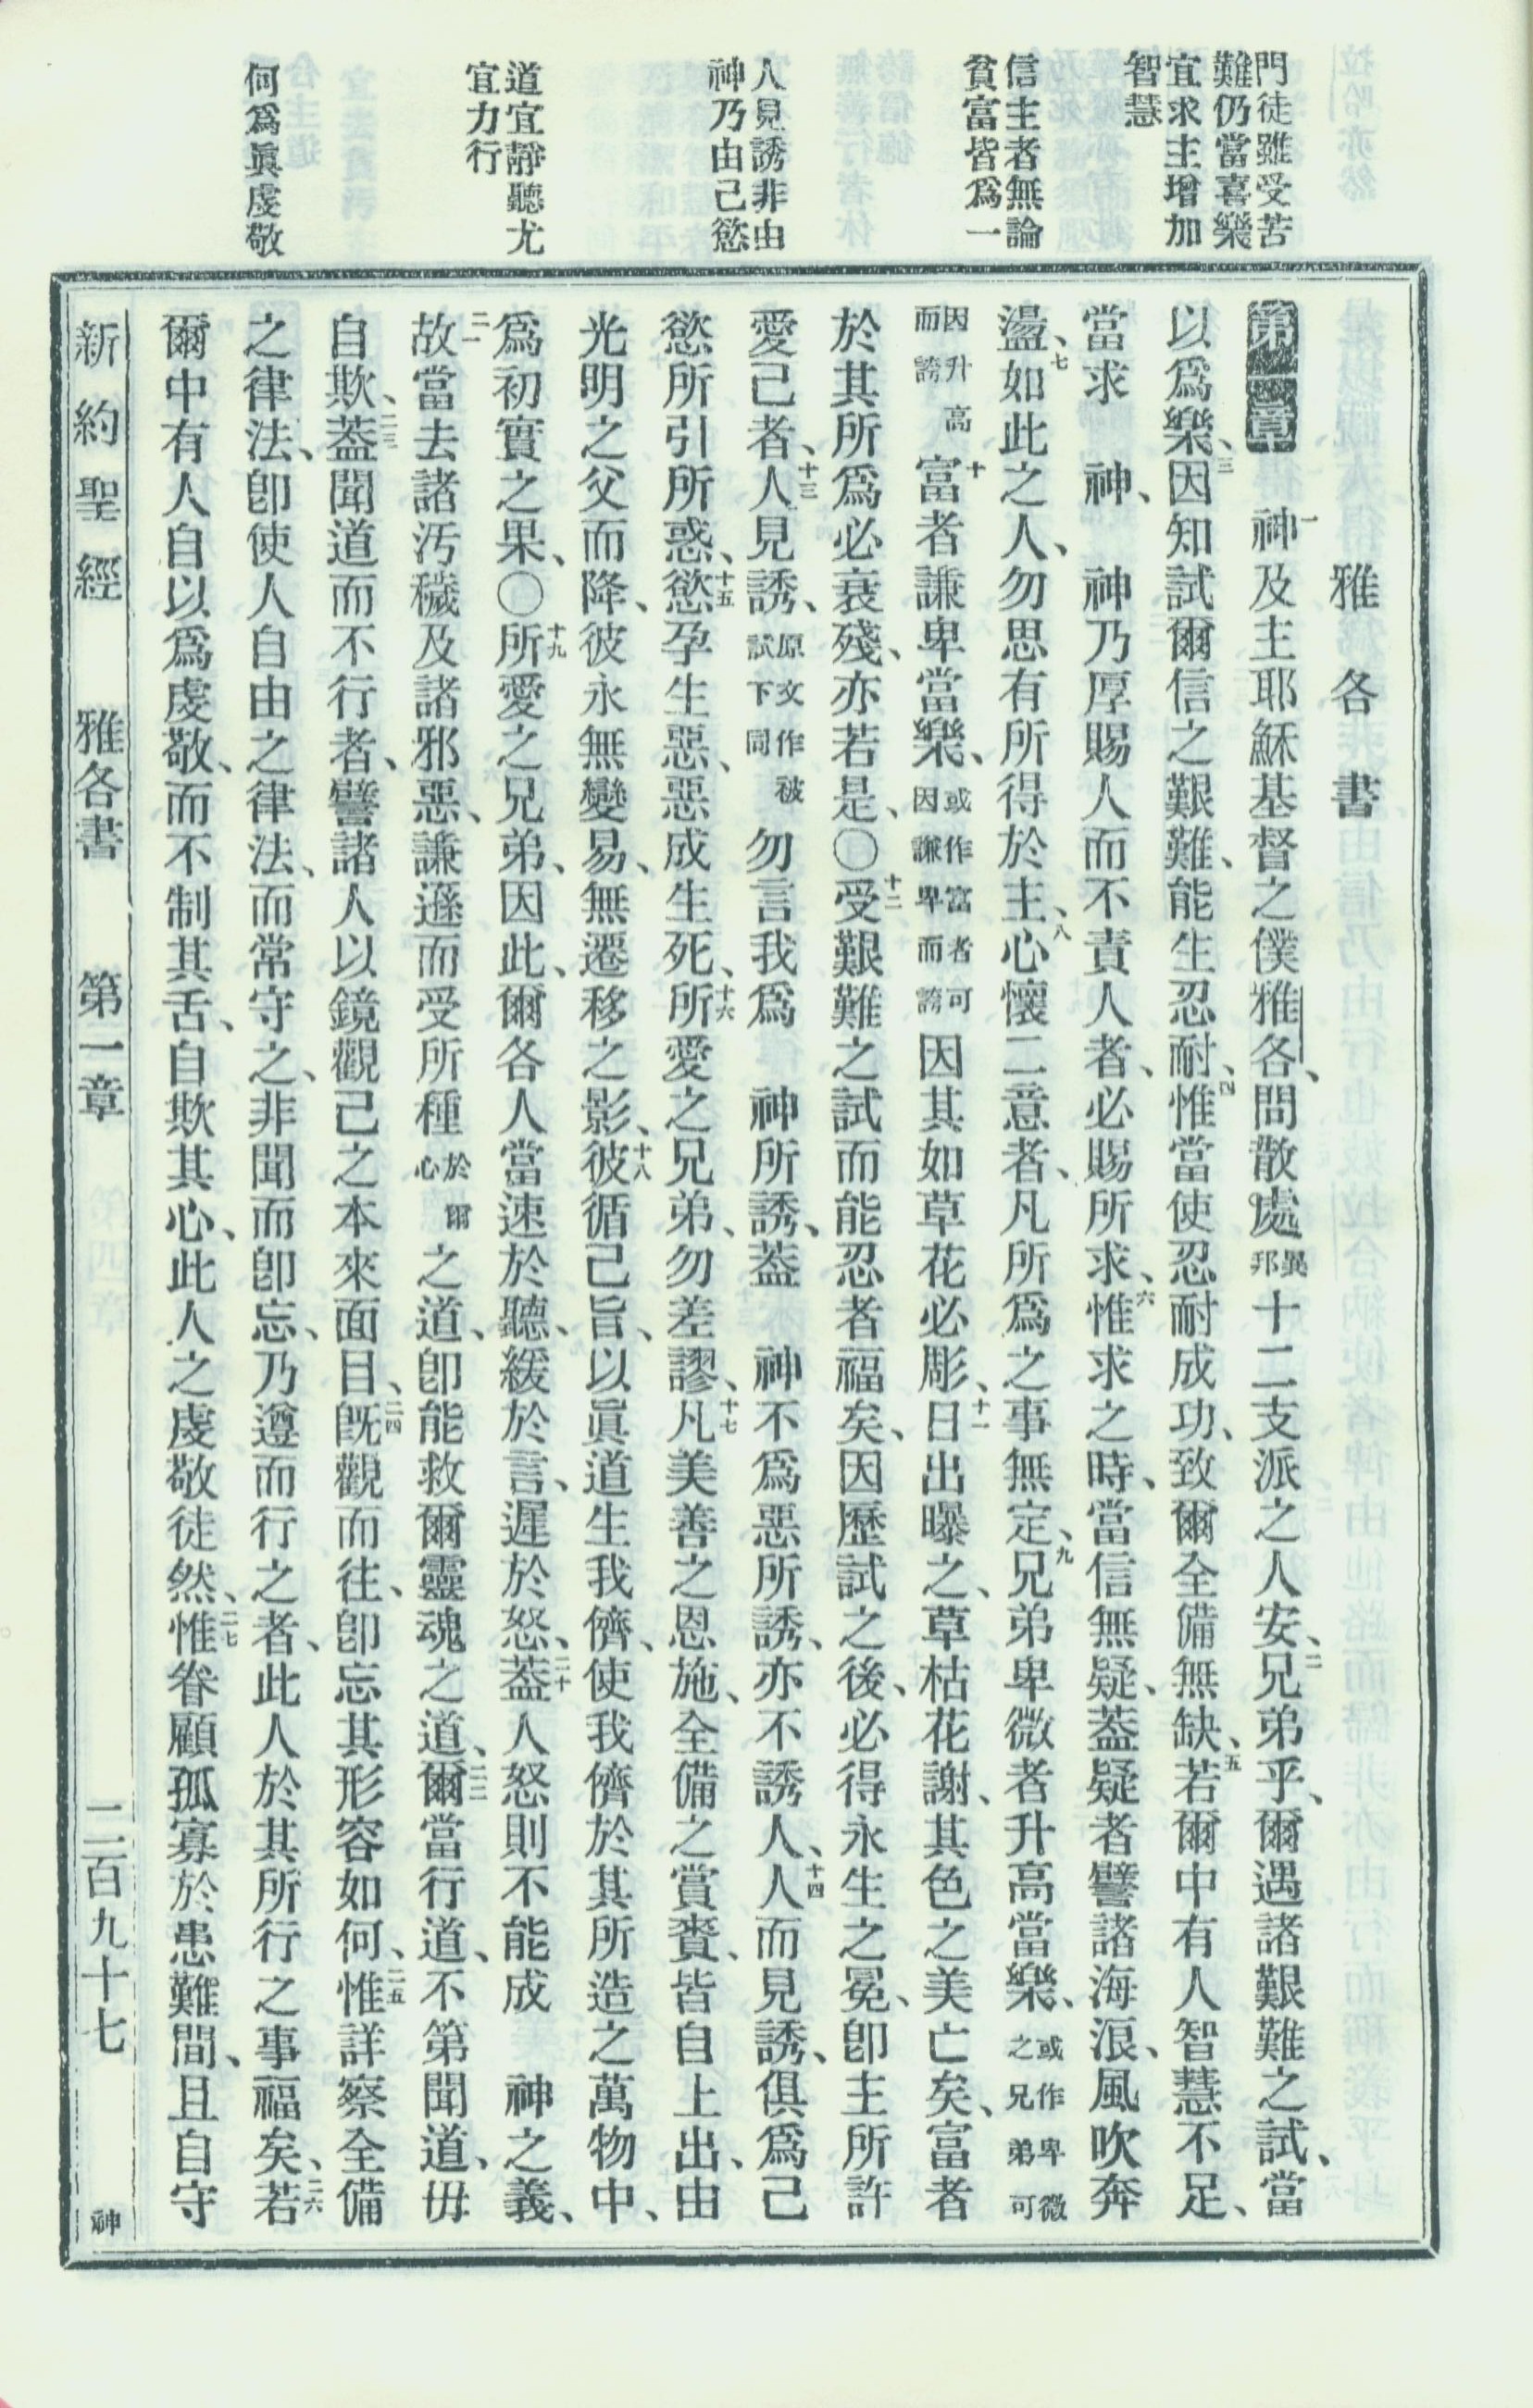 門徒雖受苦
難仍當喜樂
宜求主增加
智慧
信主者無論
貧富皆爲一
人見誘非由
神乃由己慾
道宜靜聽尤
宜力行
何爲眞虔敬
雅各書
第一章 一神及主耶穌基督之僕雅各、問散處異邦十二支派之人安、二兄弟乎、爾遇諸艱難之試、當
以爲樂、三因知試爾信之艱難、能生忍耐、四惟當使忍耐成功、致爾全備無缺、五若爾中有人智慧不足、
當求 神、 神乃厚賜人而不責人者、必賜所求、六惟求之時、當信無疑、蓋疑者譬諸海浪、風吹奔
盪、七如此之人、勿思有所得於主、八心懷二意者、凡所爲之事無定、九兄弟卑微者升高當樂、或作卑微之兄弟可
因升高而誇十富者謙卑當樂、或作富者可因謙卑而誇因其如草花必彫、十一日出曝之、草枯花謝、其色之美亡矣、富者
於其所爲必衰殘、亦若是、〇十二受艱難之試而能忍者福矣、因歷試之後、必得永生之冕、卽主所許
愛己者、十三人見誘、原文作被試下同勿言我爲 神所誘、蓋 神不爲惡所誘、亦不誘人、十四人而見誘、俱爲己
慾所引所惑、十五慾孕生惡、惡成生死、十六所愛之兄弟、勿差謬、十七凡美善之恩施、全備之賞賚、皆自上出、由
光明之父而降、彼永無變易、無遷移之影、十八彼循己旨、以眞道生我儕、使我儕於其所造之萬物中、
爲初實之果、〇十九所愛之兄弟、因此、爾各人當速於聽、緩於言、遲於怒、二十蓋人怒則不能成 神之義、
二一故當去諸汚穢及諸邪惡、謙遜而受所種於爾心之道、卽能救爾靈魂之道、二二爾當行道、不第聞道、毋
自欺、二三蓋聞道而不行者、譬諸人以鏡觀己之本來面目、二四旣觀而往、卽忘其形容如何、二五惟詳察全備
之律法、卽使人自由之律法、而常守之、非聞而卽忘、乃遵而行之者、此人於其所行之事福矣、二六若
爾中有人自以爲虔敬、而不制其舌、自欺其心、此人之虔敬徒然、二七惟眷顧孤寡於患難間、且自守
新約聖經 雅各書 第一章 二百九十七 神